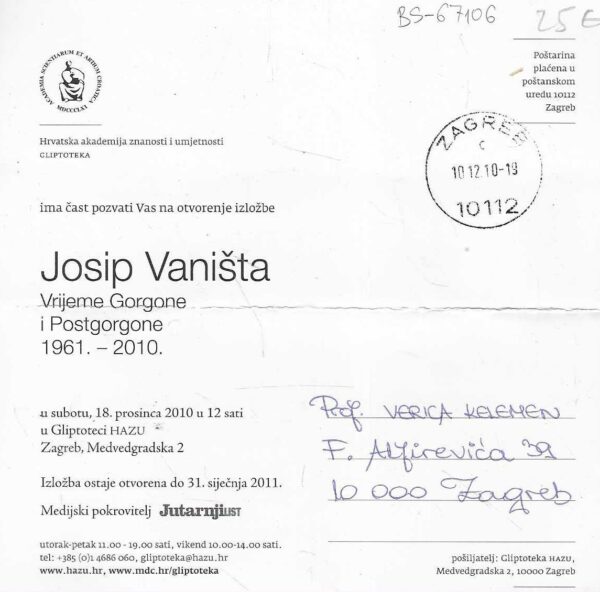 BS-67106
25€
ACADEMIA SCIENTIARUM ET ARTIUM CROATICA
MDCCCLXI
Poštarina
plaćena u
poštanskom
uredu 10112
Zagreb
Hrvatska akademija znanosti i umjetnosti
GLIPTOTEKA
ZAGREB
C
10.12.10-19
10112
ima čast pozvati Vas na otvorenje izložbe
Josip Vaništa
Vrijeme Gorgone
i Postgorgone
1961. – 2010.
u subotu, 18. prosinca 2010 u 12 sati
u Gliptoteci HAZU
Zagreb, Medvedgradska 2
Izložba ostaje otvorena do 31. siječnja 2011.
Medijski pokrovitelj Jutarnji LIST
utorak-petak 11.00 - 19.00 sati, vikend 10.00-14.00 sati.
tel: +385 (0)1 4686 060, gliptoteka@hazu.hr
www.hazu.hr, www.mdc.hr/gliptoteka
Prof. VERICA KELEMEN
F. Alfirevića 39
10 000 Zagreb
pošiljatelj: Gliptoteka HAZU,
Medvedgradska 2, 10000 Zagreb